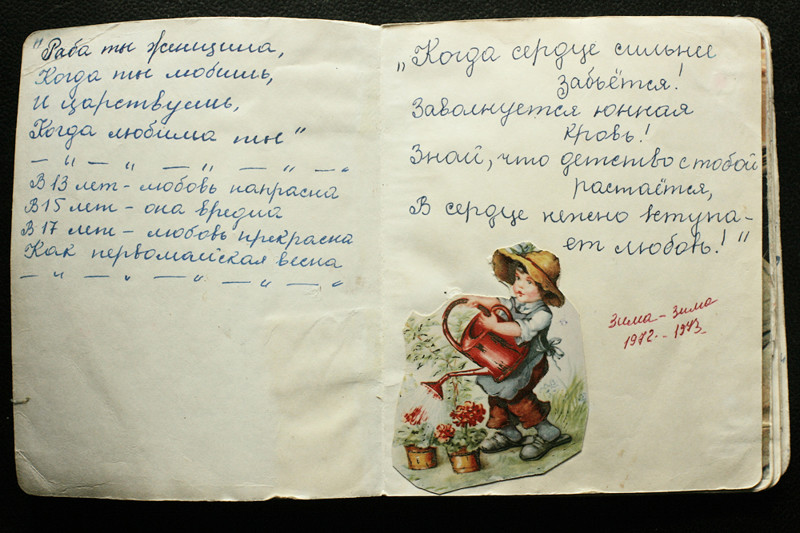 "Раба ты женщина,
Когда ты любишь,
И царствуешь,
Когда любима ты"
— " — " — " — " — "
В 13 лет - любовь напрасна
В 15 лет - она вредна
В 17 лет - любовь прекрасна
Как первомайская весна
— " — " — " — " — "
„Когда сердце сильнее
забьётся!
Заволнуется юнная
кровь!
Знай, что детство с тобой
растаётся,
В сердце нежно вступа-
ет любовь!"
Зима - зима
1972 - 1973